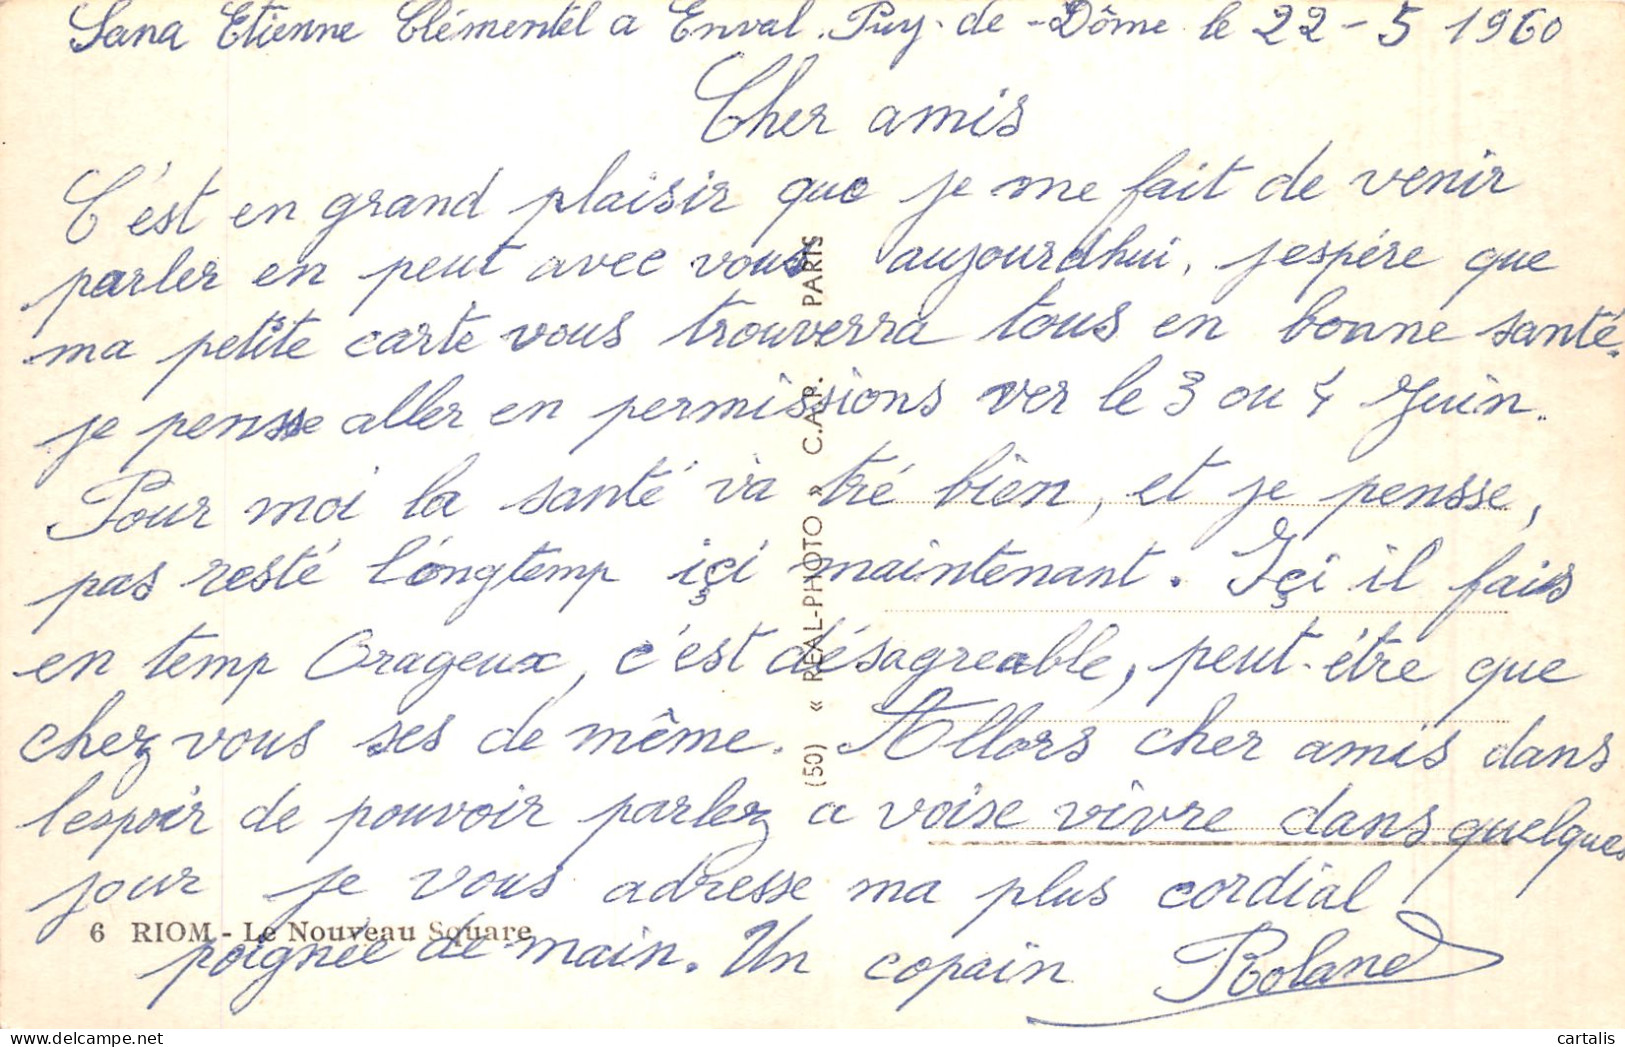 Sana Etienne Clémentél a Enval. Puy-de-Dôme le 22-5 1960
Cher amis
C'est en grand plaisir que je me fait de venir
parler en peut avec vous aujourdhui, jespére que
ma petite carte vous trouverra tous en bonne santé.
je pensse aller en permissions ver le 3 ou 4 Juin.
Pour moi la santé va tré bien, et je pensse,
pas resté lóngtemp içi maintenant. Içi il fais
en temp Orageux, c'est désagreable, peut-étre que
chez vous ses de même. Allors cher amis dans
lespoir de pouvoir parlez a voise vivre dans quelques
jour je vous adresse ma plus cordial
poignée de main. Un copain Roland
6 RIOM - Le Nouveau Square
(50) « REAL-PHOTO » C.A.P. - PARIS
cartalis